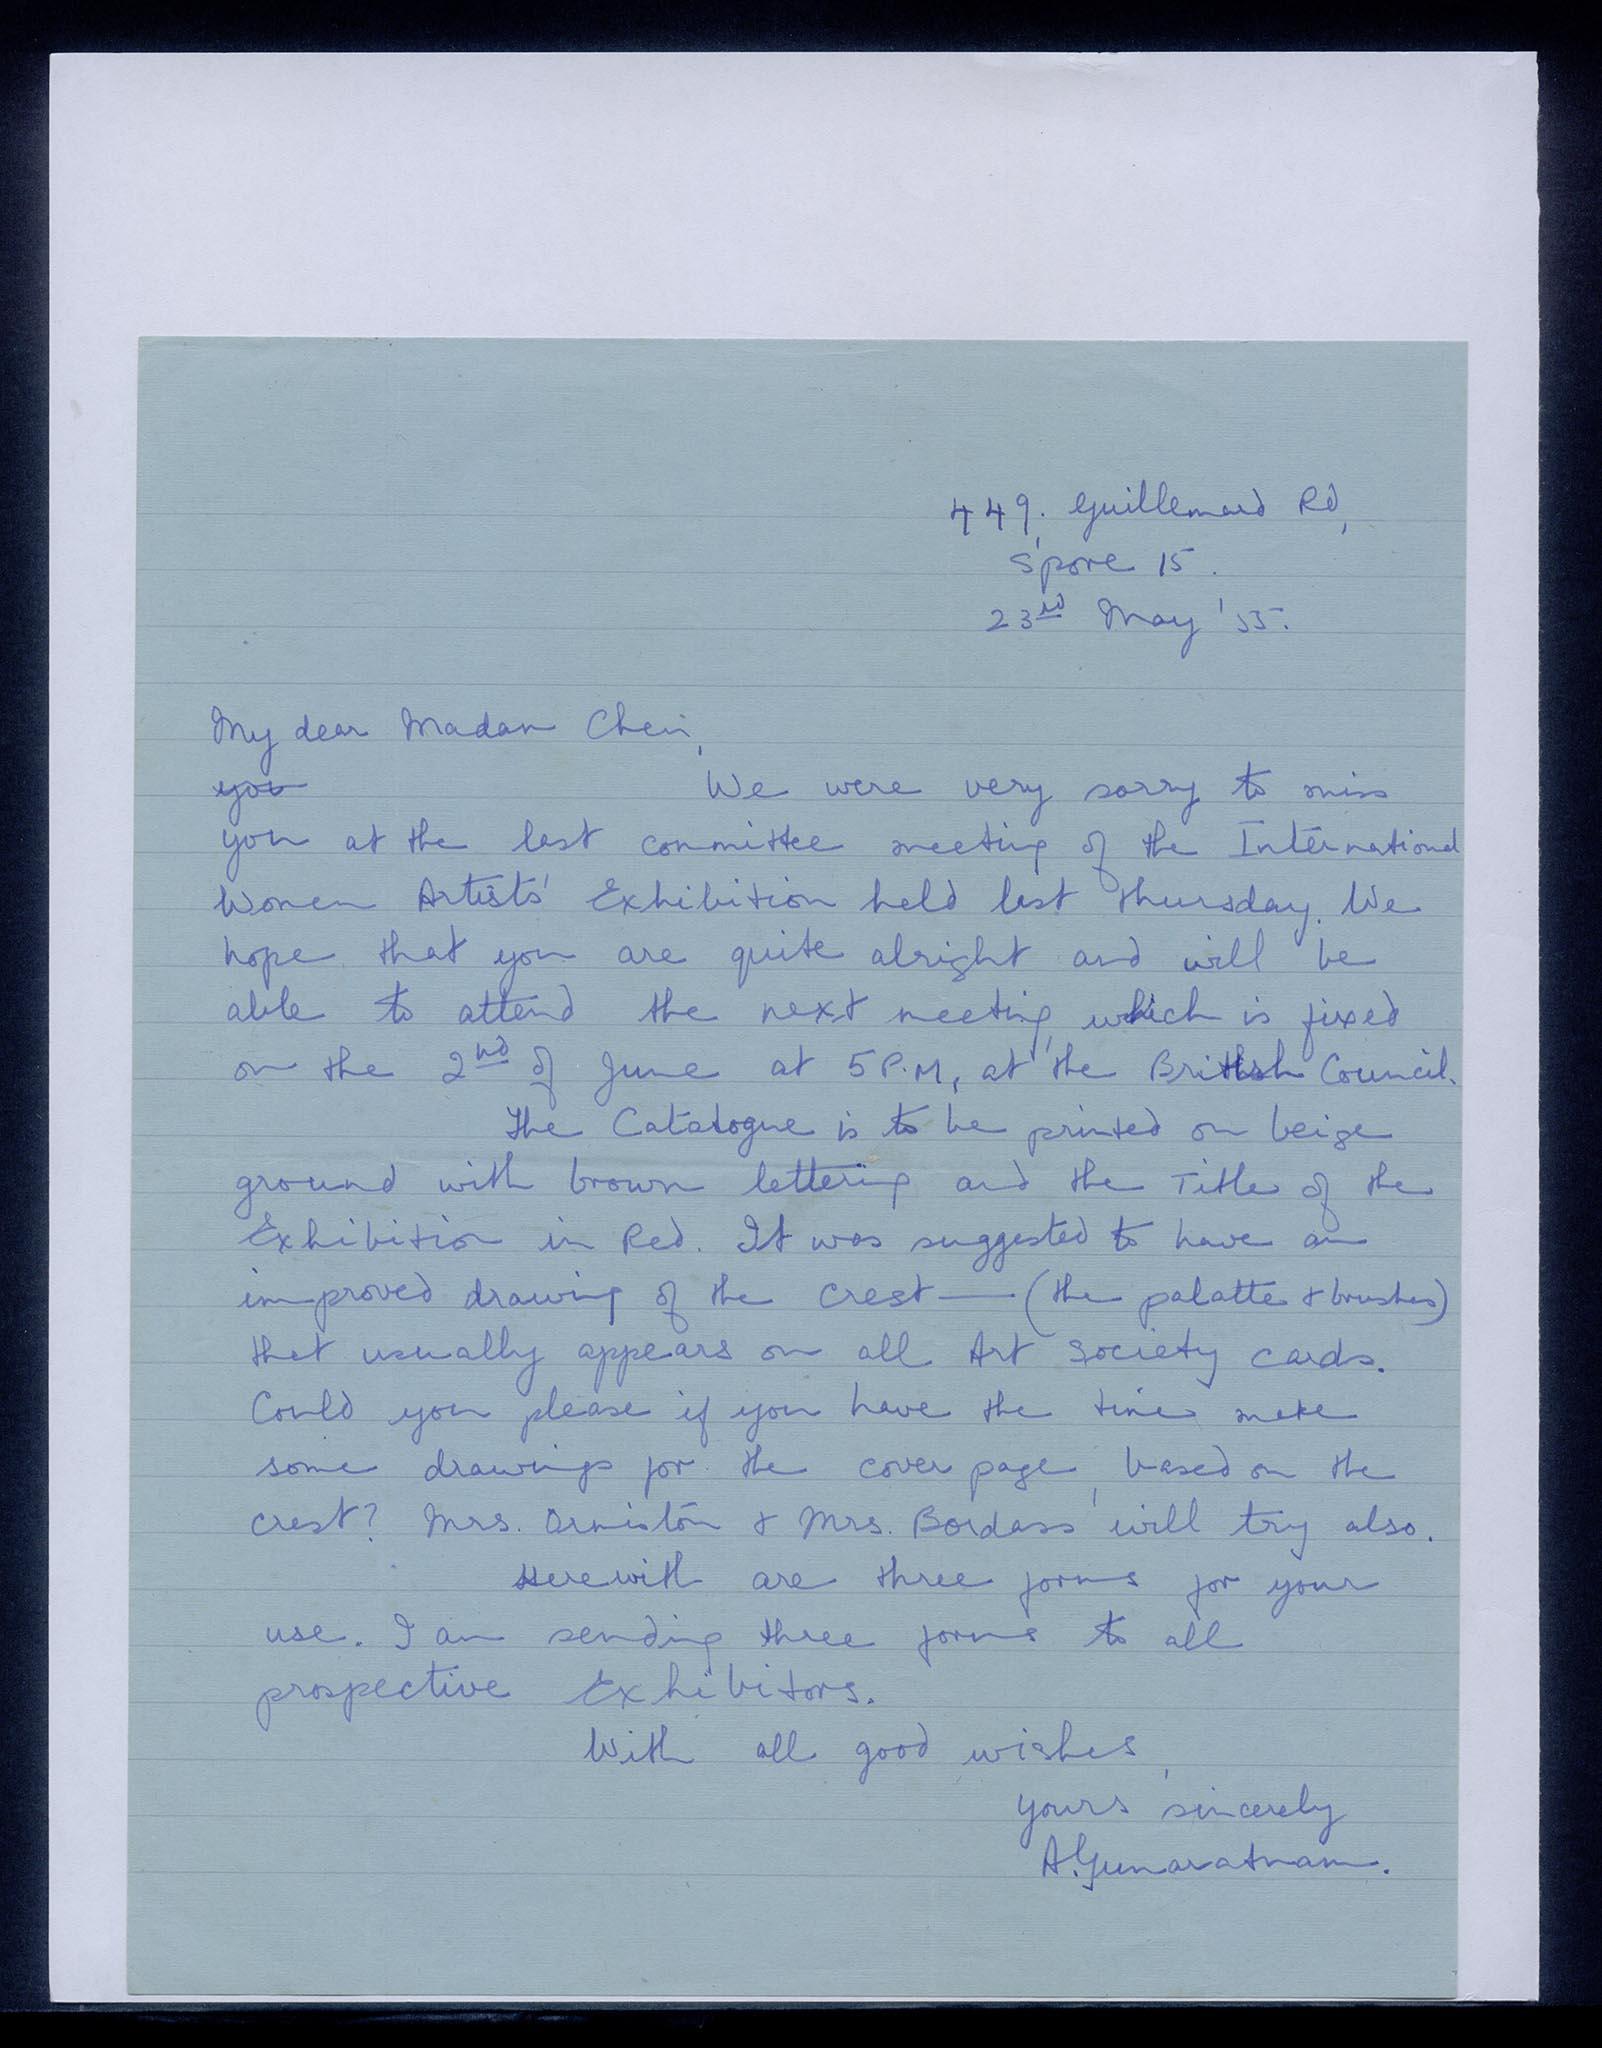 449, Guillemard Rd,
S'pore 15.
23rd May '55.
My dear Madam Chen,
you We were very sorry to miss
you at the last committee meeting of the International
Women Artists' Exhibition held last Thursday. We
hope that you are quite alright and will be
able to attend the next meeting, which is fixed
on the 2nd of June at 5 P.M, at the British Council.
The Catalogue is to be printed on beige
ground with brown lettering and the Title of the
Exhibition in Red. It was suggested to have an
improved drawing of the crest — (the palatte & brushes)
that usually appears on all Art Society cards.
Could you please if you have the time make
some drawings for the cover page, based on the
crest? Mrs. Ormiston & Mrs. Bordass will try also.
Herewith are three forms for your
use. I am sending three forms to all
prospective Exhibitors.
With all good wishes,
Yours sincerely
A. Gunaratnam.